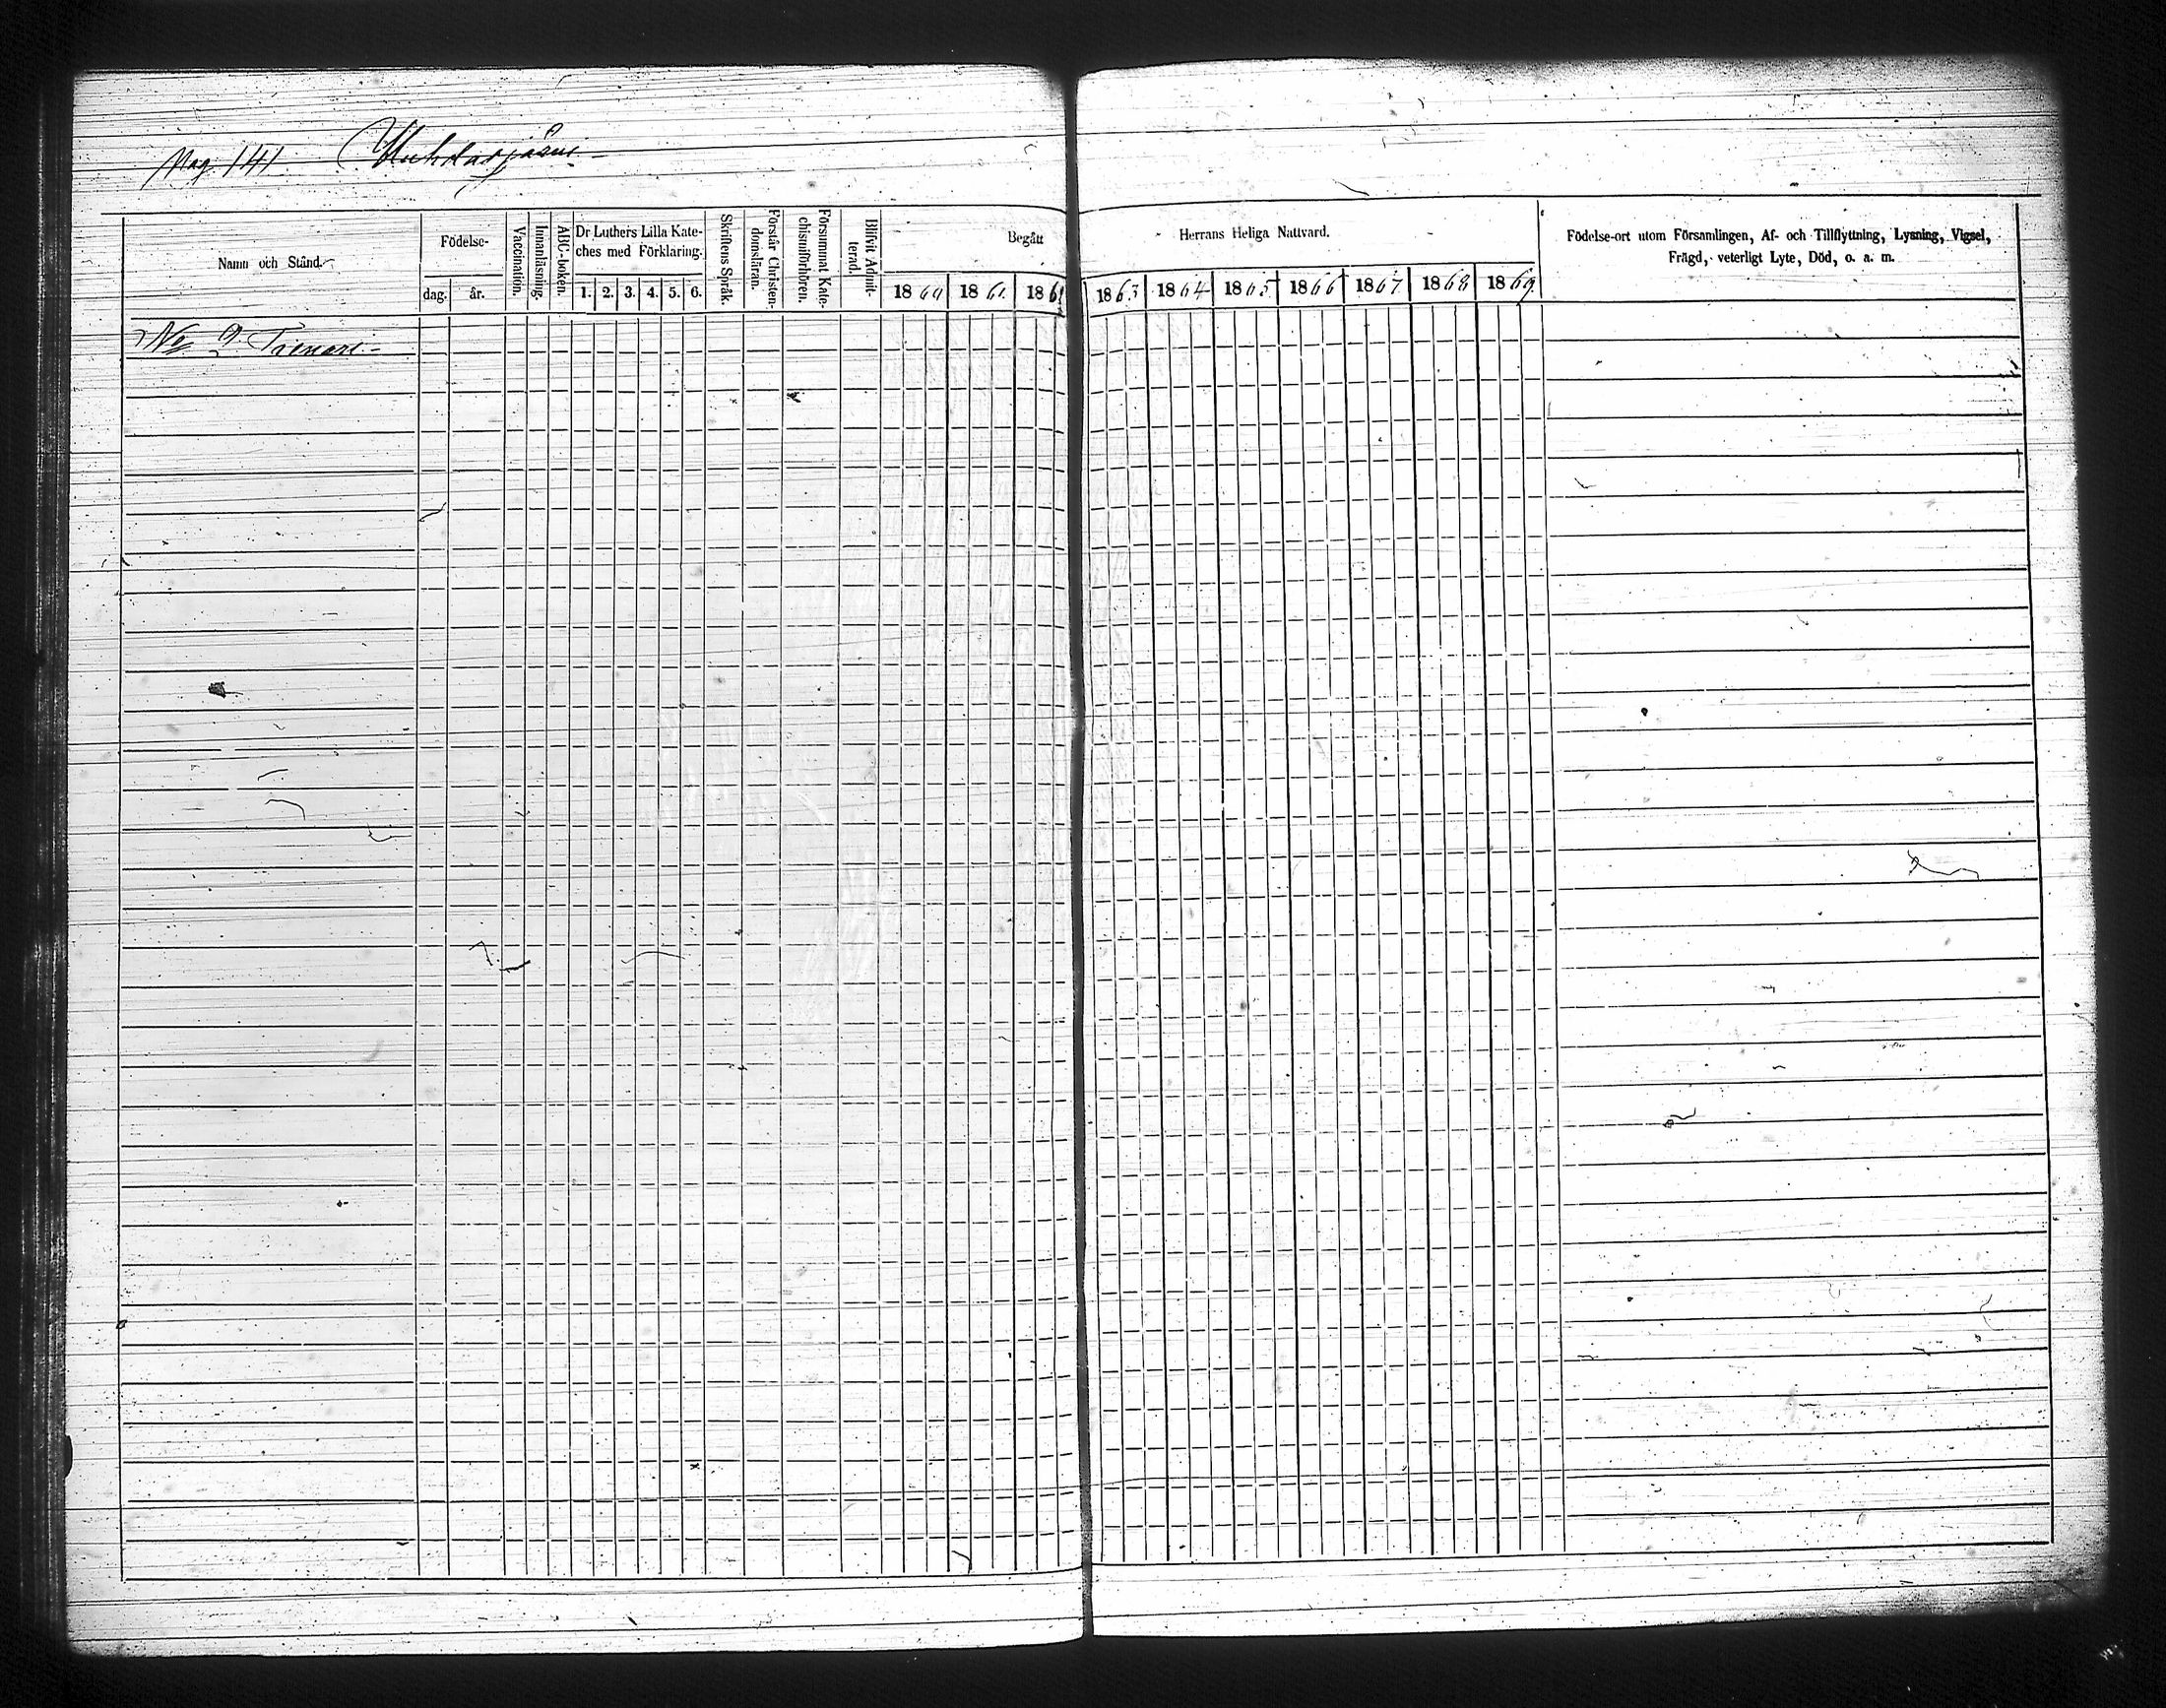 Pag. 141 Huhdasjärvi
Namn och Stånd.
Födelse-
dag.
år.
Vaccination.
Innanläsning.
ABC-boken.
Dr Luthers Lilla Kate-
ches med Förklaring.
1. 2. 3. 4. 5. 6.
Skriftens Språk.
Förstår Christen-
domsläran.
Försummat Kate-
chismiförhören.
Blifvit Admit-
terad.
Begått Herrans Heliga Nattvard.
1860 1861 186 1863 1864 1865 1866 1867 1868 1869
Födelse-ort utom Församlingen, Af- och Tillflyttning, Lysning, Vigsel,
Frägd, veterligt Lyte, Död, o. a. m.
No 9